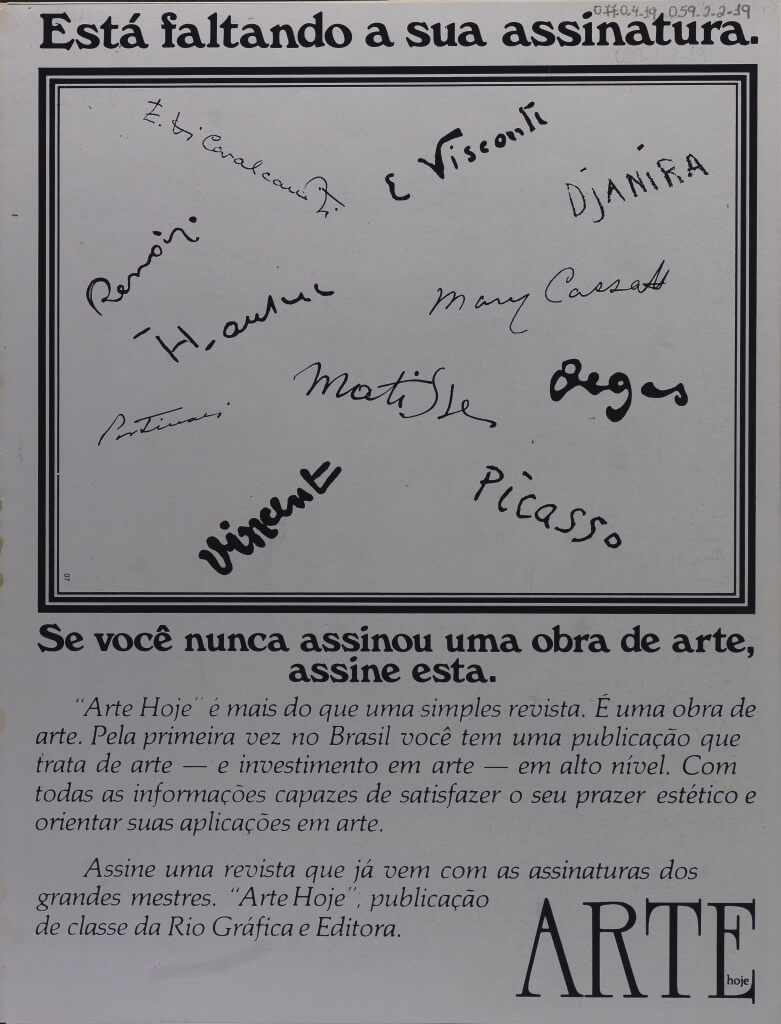 077.0.4.19 059-2-2-19
Está faltando a sua assinatura.
E. di Cavalcanti
E Visconti
DJANIRA
Renoir.
Mary Cassatt
H. Lautrec
Matisse
Degas
Portinari
Vincent
Picasso
07
Se você nunca assinou uma obra de arte,
assine esta.
"Arte Hoje" é mais do que uma simples revista. É uma obra de
arte. Pela primeira vez no Brasil você tem uma publicação que
trata de arte — e investimento em arte — em alto nível. Com
todas as informações capazes de satisfazer o seu prazer estético e
orientar suas aplicações em arte.
Assine uma revista que já vem com as assinaturas dos
grandes mestres. "Arte Hoje", publicação
de classe da Rio Gráfica e Editora.
ARTE
hoje